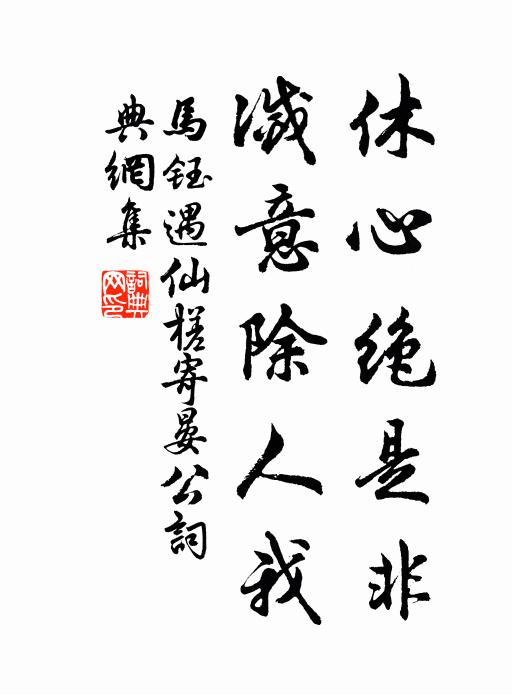 休心絶是非
滅意除人我
馬鈺遇仙槎寄晏公詞
典網集
詞典
网印